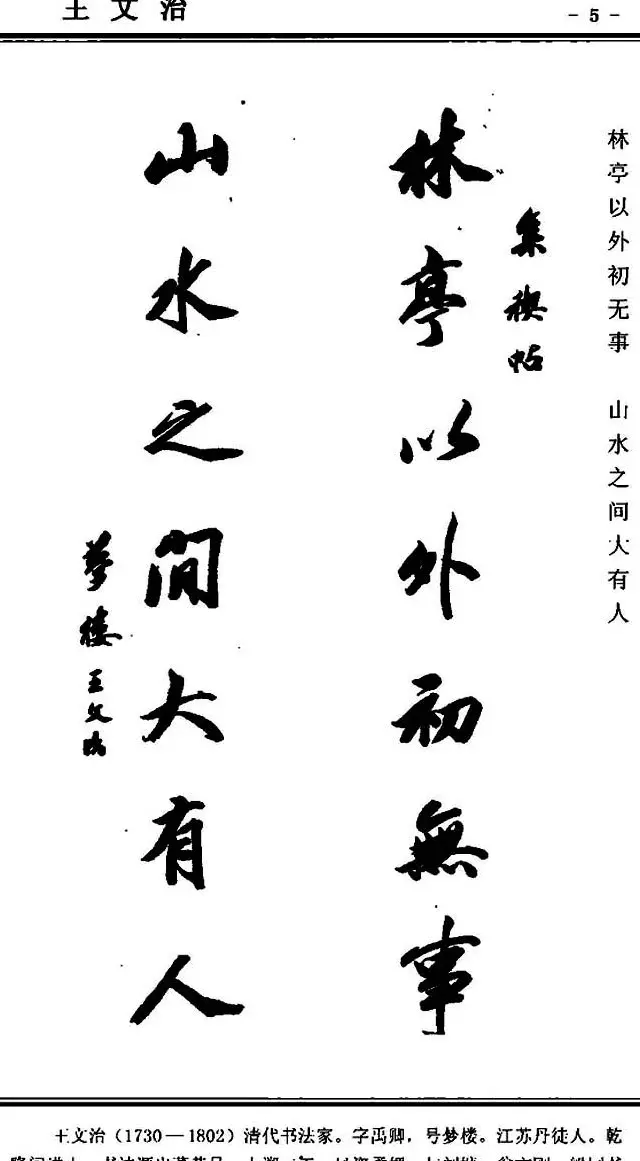 王文治
- 5 -
林亭以外初无事 山水之间大有人
集禊帖
林亭以外初無事
山水之間大有人
梦楼王文治
王文治（1730—1802）清代书法家。字禹卿，号梦楼。江苏丹徒人。乾